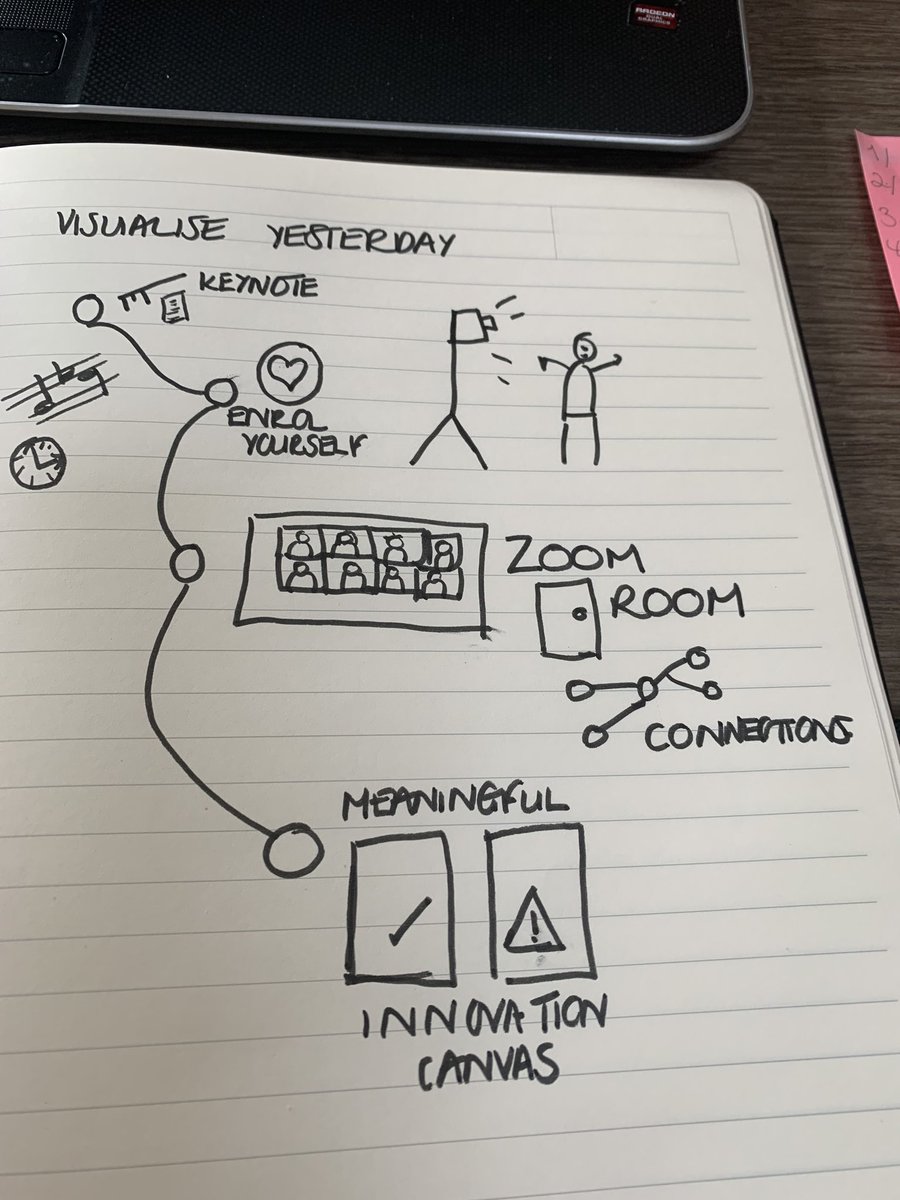 RADEON
DUAL
GRAPHICS
VISUALISE YESTERDAY
KEYNOTE
ENROL
YOURSELF
ZOOM
ROOM
CONNECTIONS
MEANINGFUL
INNOVATION
CANVAS
1)
2)
3
4